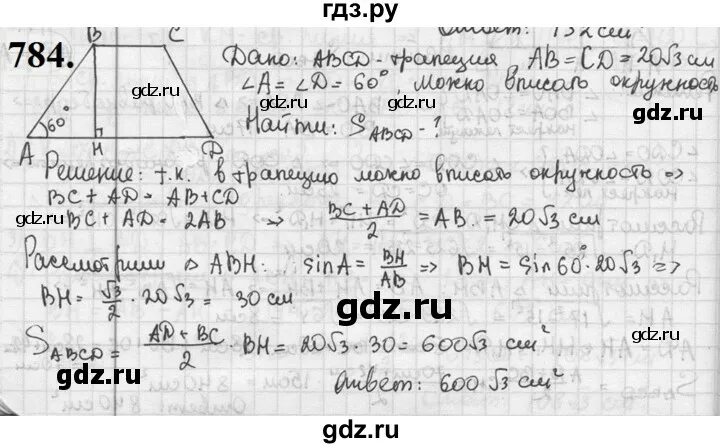 гдз.ру
784.
Ответ: 132 см
B C
Дано: ABCD - трапеция, AB = CD = 20√3 см
∠A = ∠D = 60°, можно вписать окружность
60°
Найти: S ABCD - ?
A H D
Решение: т.к. в трапецию можно вписать окружность =>
BC + AD = AB + CD
BC + AD = 2AB => (BC + AD)/2 = AB = 20√3 см
Рассмотрим △ ABH: sinA = BH/AB => BH = sin60° · 20√3 =>
BH = √3/2 · 20√3 = 30 см
S ABCD = (AD + BC)/2 BH = 20√3 · 30 = 600√3 см²
Ответ: 600√3 см²
gdz.ru
gdz.ru
gdz.ru
gdz.ru
gdz.ru
gdz.ru
gdz.ru
gdz.ru
gdz.ru